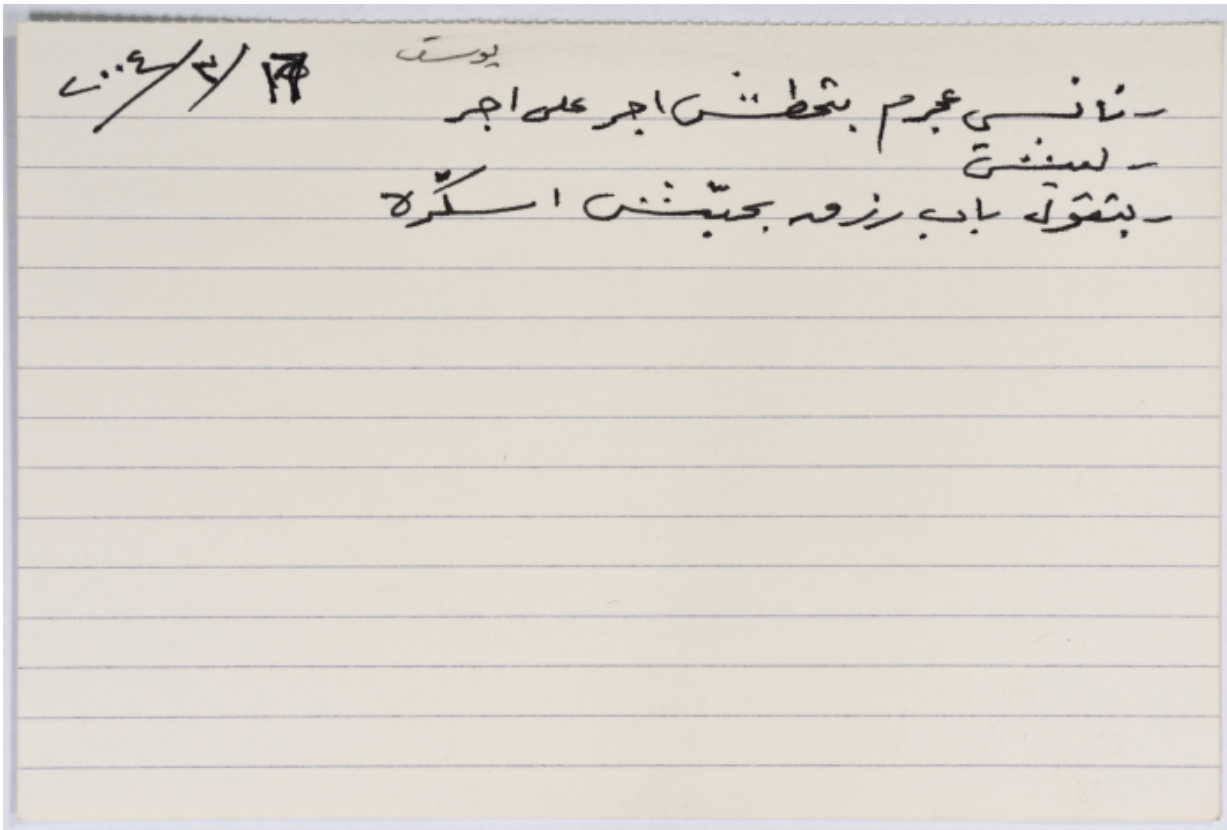 ١٦/٣/٢٠٠٤
يوسف
- نانسي عجرم بتحطش اجر على اجر
- ليش
- بتقول باب رزق بحبّش اسكّره